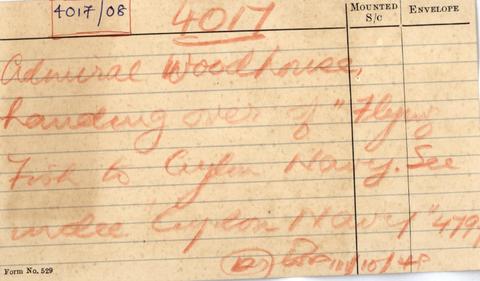 4017/08
4017
MOUNTED S/C
ENVELOPE
Admiral Woodhouse,
handing over of "Flying
Fish to Ceylon Navy. See
under Ceylon Navy" 479
10/10/48
Form No. 529